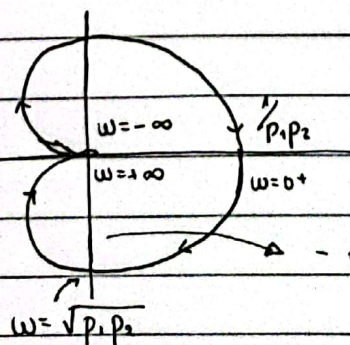 ω=-∞
1/p₁p₂
ω=+∞
ω=0⁺
ω=√p₁p₂